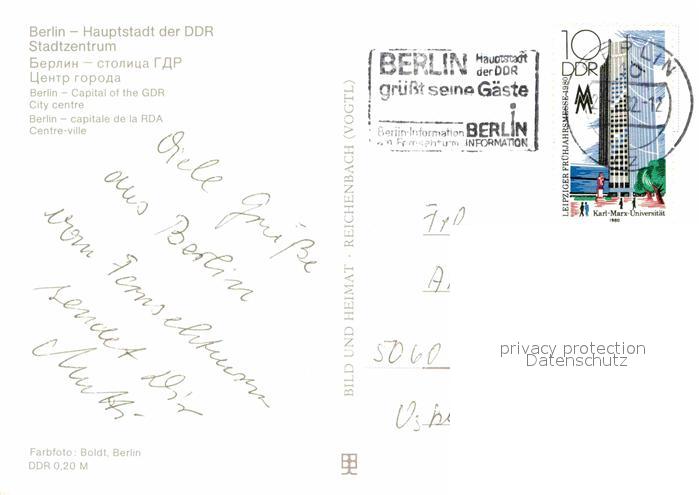 Berlin – Hauptstadt der DDR
Stadtzentrum
Берлин – столица ГДР
Центр города
Berlin – Capital of the GDR
City centre
Berlin – capitale de la RDA
Centre-ville
Viele Grüße
aus Berlin
vom Fernsehturm
sendet Dir
Farbfoto: Boldt, Berlin
DDR 0,20 M
BILD UND HEIMAT · REICHENBACH (VOGTL)
BERLIN Hauptstadt
der DDR
grüßt seine Gäste
Berlin-Information BERLIN
am Fernsehturm INFORMATION
10
DDR
LEIPZIGER FRÜHJAHRSMESSE 1980
Karl-Marx-Universität
1980
BERLIN
5060
privacy protection
Datenschutz